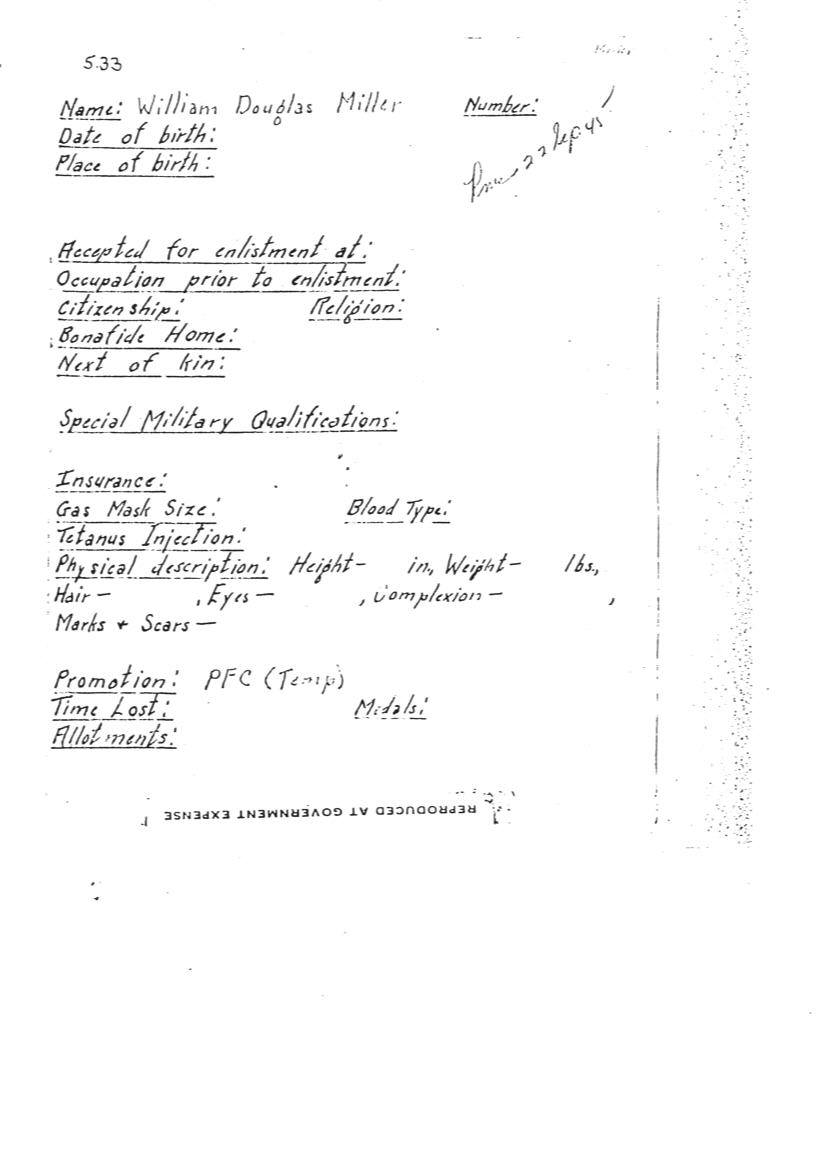 533
Name: William Douglas Miller Number:
Date of birth:
Place of birth:
22 Sep 45
Accepted for enlistment at:
Occupation prior to enlistment:
Citizenship: Religion:
Bonafide Home:
Next of kin:
Special Military Qualifications:
Insurance:
Gas Mask Size: Blood Type:
Tetanus Injection:
Physical description: Height- in., Weight- lbs.,
Hair- , Eyes- , Complexion- ,
Marks + Scars-
Promotion: PFC (Temp)
Time Lost: Medals:
Allotments:
REPRODUCED AT GOVERNMENT EXPENSE